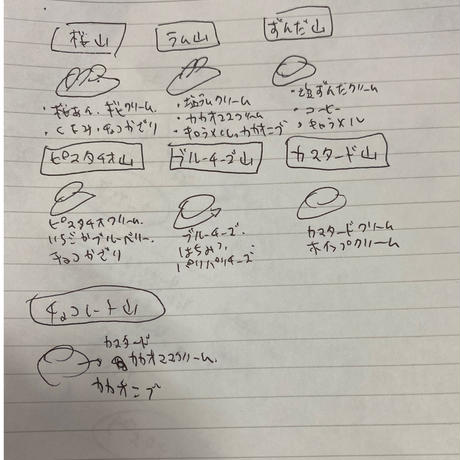 桜山
ラム山
ずんだ山
・桜あん、ギモクリーム
・くるみ、チョコかざり
・塩ラムクリーム
・カカオマスクリーム
・キャラメル、カカオニブ
・塩ずんだクリーム
・コーヒー
・キャラメル
ピスタチオ山
ブルーチーズ山
カスタード山
ピスタチオクリーム
いちごかブルーベリー
チョコかざり
ブルーチーズ
はちみつ
パリパリチーズ
カスタードクリーム
ホイップクリーム
チョコレート山
カスタード
カカオマスクリーム
カカオニブ